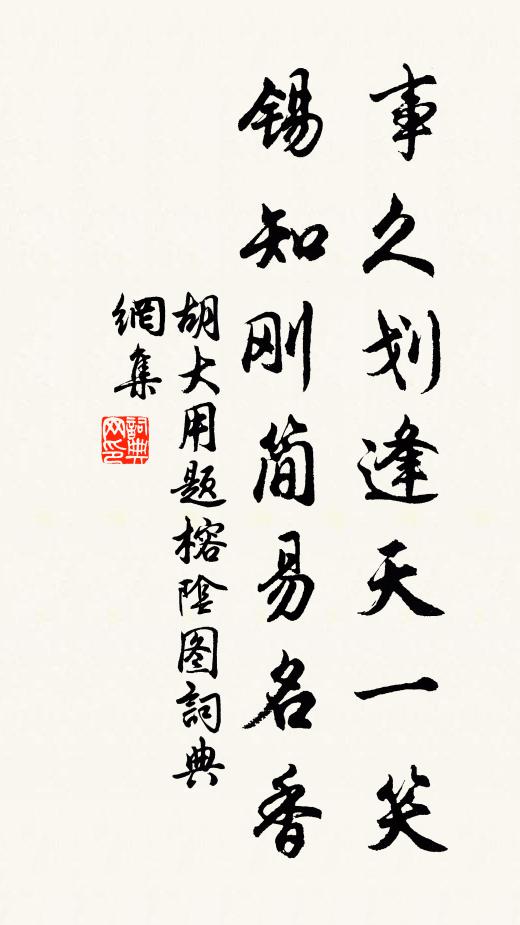 事久划逢天一笑
锡知刚简易名香
胡大用题榕陰图詞典
網集
詞典网印